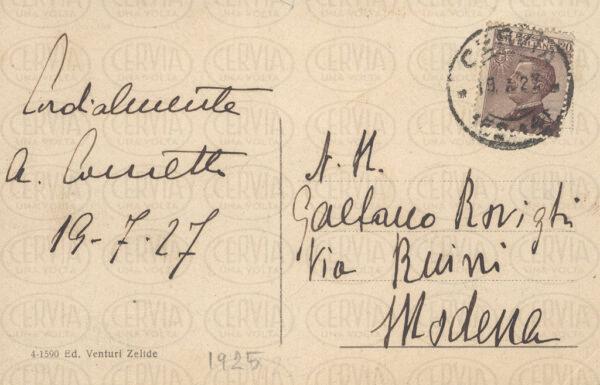 Cordialmente
A.
19-7-27
N. H.
Gaetano Rovighi
Via Ruini
Modena
4-1590 Ed. Venturi Zelide
1925
CERVIA
UNA VOLTA